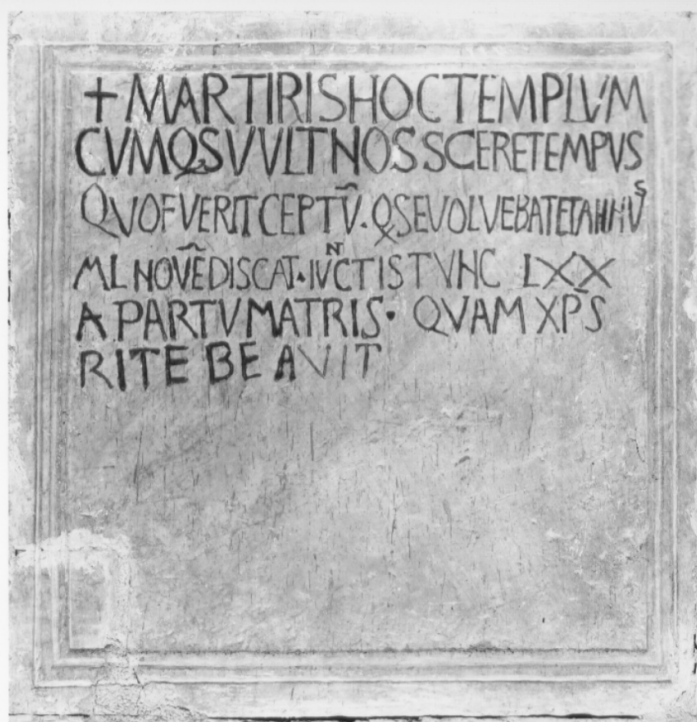 + MARTIRIS HOC TEMPLVM
CVMQS VVLT NOSSCERE TEMPVS
QVO FVERIT CEPTV̄ · QS EVOLVEBATET ANNVS
ML NOVĒ DISCAT · IVNCTIS TVNC LXX
A PARTV MATRIS · QVAM XP̄S
RITE BEAVIT